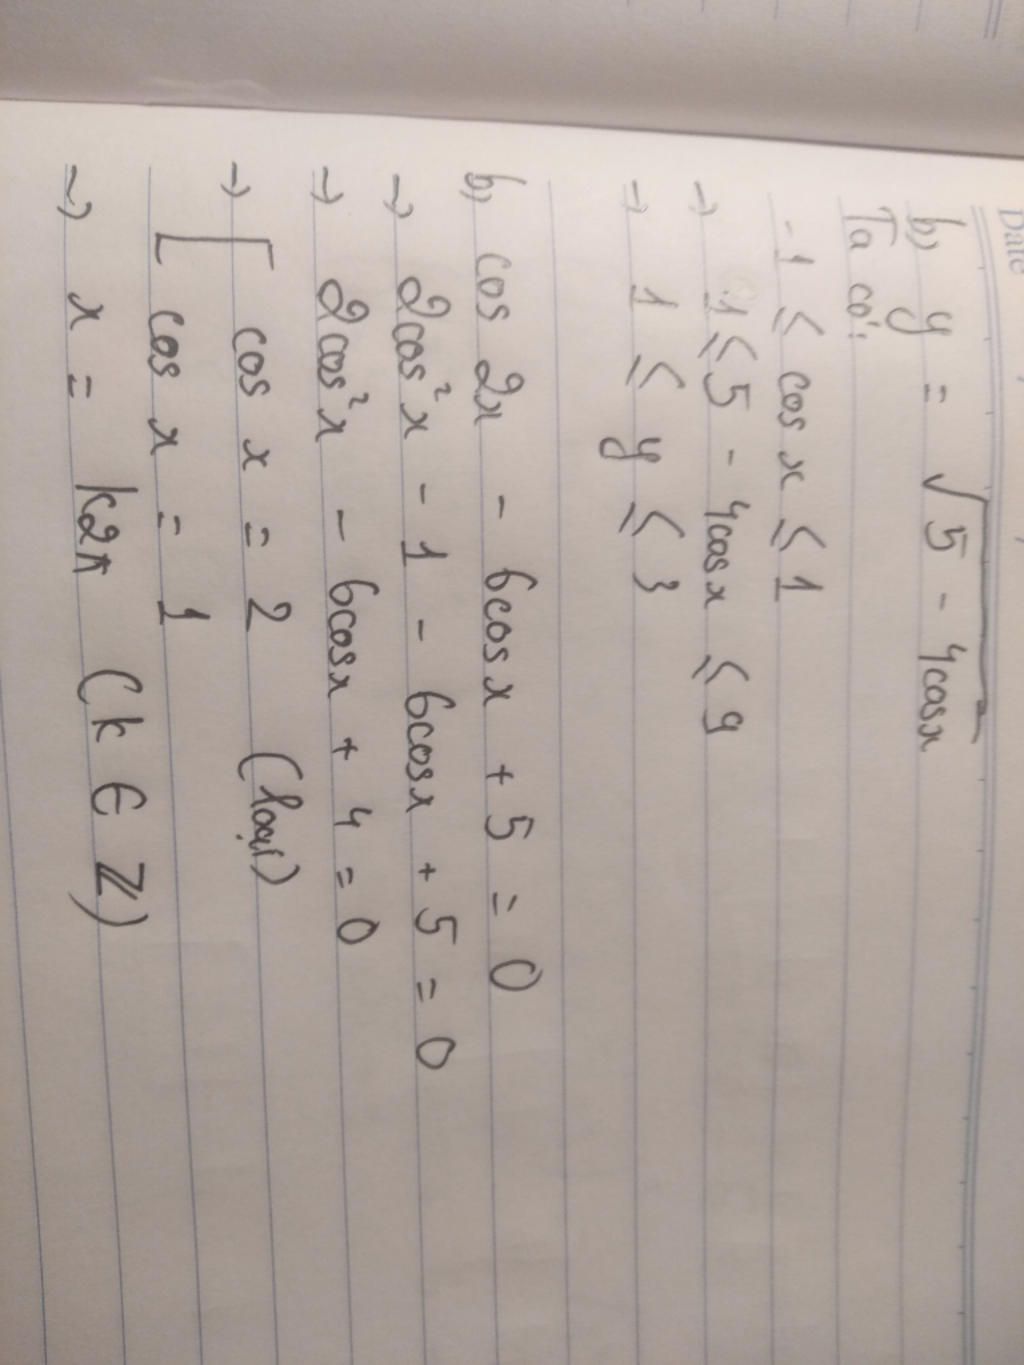 Date
b) y = √5 - 4cosx
Ta có:
-1 ≤ cos x ≤ 1
→ 1 ≤ 5 - 4cosx ≤ 9
→ 1 ≤ y ≤ 3
b) cos 2x - 6cosx + 5 = 0
→ 2cos²x - 1 - 6cosx + 5 = 0
→ 2cos²x - 6cosx + 4 = 0
→ [ cos x = 2 (loại)
cos x = 1
→ x = k2π (k ∈ ℤ)